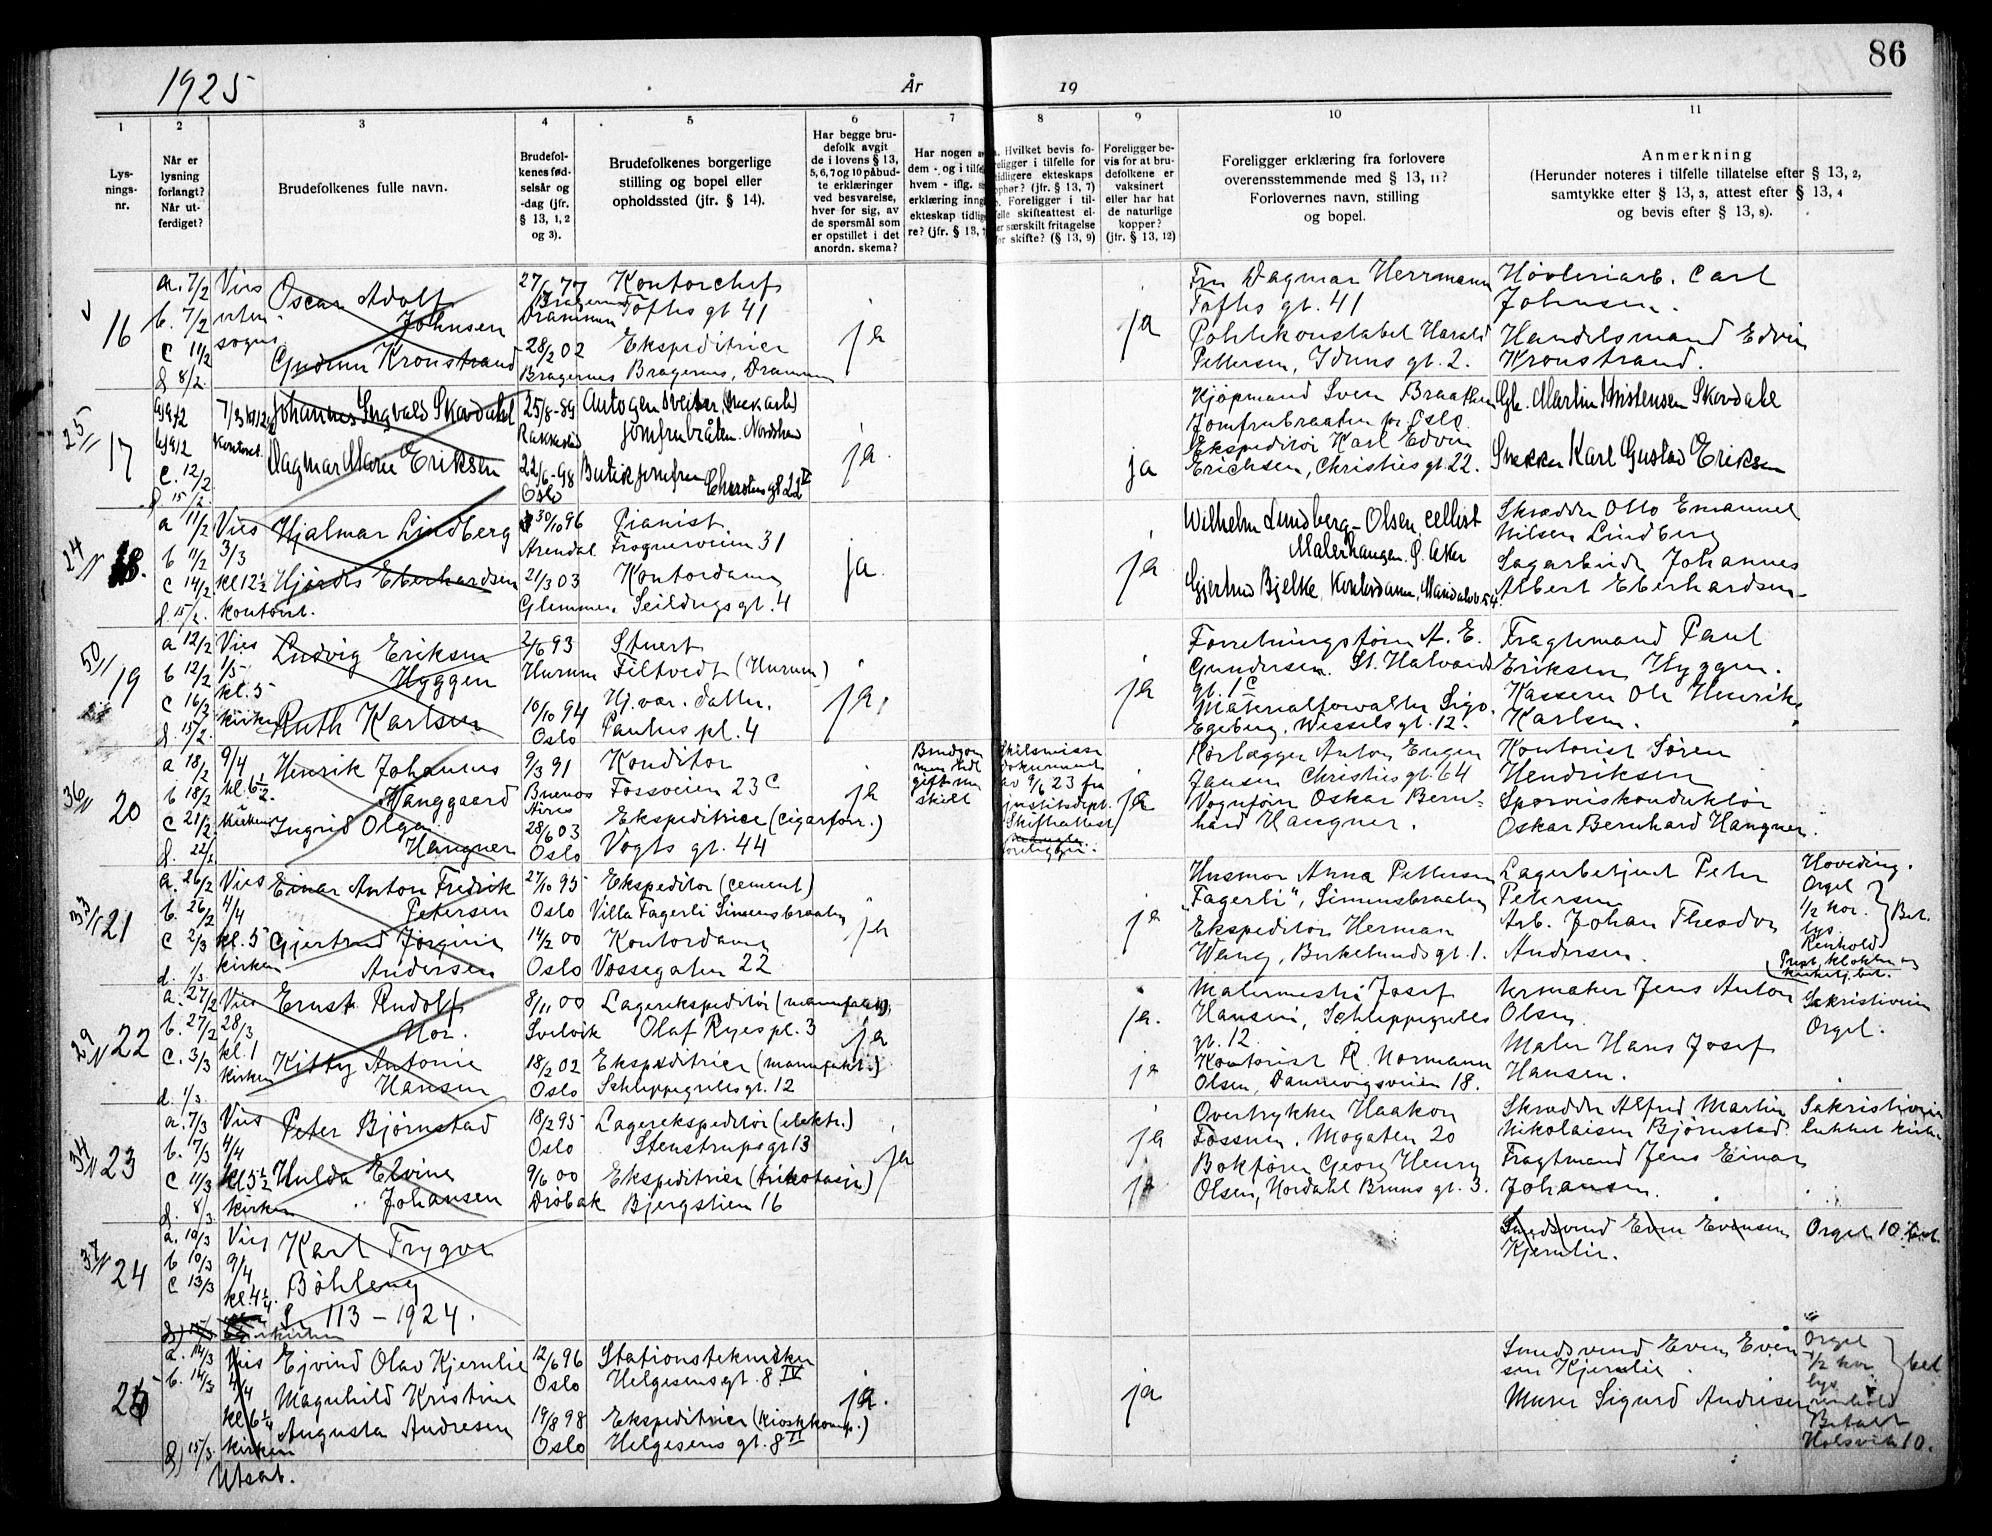 86
1925
År
19
1
2
3
4
5
6
7
8
9
10
11
Lys-
nings-
nr.
Når er
lysning
forlangt?
Når ut-
ferdiget?
Brudefolkenes fulle navn.
Brudefol-
kenes fød-
selsår og
-dag (jfr.
§ 13, 1, 2
og 3).
Brudefolkenes borgerlige
stilling og bopel eller
opholdssted (jfr. § 14).
Har begge bru-
defolk avgit
de i lovens § 13,
5, 6, 7 og 10 påbud-
te erklæringer
ved besvarelse,
hver for sig, av
de spørsmål som
er opstillet i det
anordn. skema?
Har nogen
dem - og i tilfe
hvem - iflg.
erklæring inng
ekteskap tidlig
re? (jfr. § 13, 7
Hvilket bevis fo-
religger i tilfelle for
tidligere ekteskaps
ophør? (jfr. § 13, 7)
Foreligger i til-
felle skifteattest el-
er særskilt fritagelse
for skifte? (§ 13, 9)
Foreligger be-
vis for at bru-
defolkene er
vaksinert
eller har hat
de naturlige
kopper?
(jfr. § 13, 12)
Foreligger erklæring fra forlovere
overensstemmende med § 13, 11?
Forlovernes navn, stilling
og bopel.
Anmerkning
(Herunder noteres i tilfelle tillatelse efter § 13, 2,
samtykke efter § 13, 3, attest efter § 13, 4
og bevis efter § 13, 8).
16
a. 7/2
b. 7/2
c 11/2
d 8/2.
Vies
uten-
sogns
Oscar Adolf
Johnsen
Gudrun Kronstrand
Drammen
28/2 02
Bragernes
Kontorchef
Tofths gt 41
Ekspeditrice
Bragernes, Drammen
ja
ja
Fru Dagmar Herrmann
Tofths gt. 41
Politikonstabel Harald
Pettersen, Iduns gt. 2.
Høvleriarb. Carl
Johnsen.
Handelsmand Edvin
Kronstrand.
17
c. 12/2
d 15/2.
kontoret.
Johannes Ingvald Skovdahl
Dagmar Marie Eriksen
25/8-89
Rakkestad
22/6-98
Oslo
Jomfrubråten. Nordstrand
Butikjomfru
Christies gt 22 IV
ja.
ja
Kjøpmand Sven Braathen
Jomfrubraaten pr Oslo.
Ekspeditør Karl Edvin
Erichsen, Christies gt. 22.
Gb. Martin Kristensen Skovdahl
Snekker Karl Gustav Eriksen
18.
a 11/2
b 11/2
c 14/2
d. 15/2.
Vies
3/3
kl 12½
kontoret.
Hjalmar Lindberg
Hjørdis Eberhardsen
30/10 96
Arendal
21/3 03
Glemmen
Pianist.
Frognerveien 31
Kontordame
Seildugs gt. 4
ja.
ja
Wilhelm Lundberg-Olsen, cellist
Malerhaugen. Ø. Aker
Gjertrud Bjelke, Kontordame, Maridalsv. 54.
Skrædder Otto Emanuel
Nilsen Lindberg
Lagarbeider Johannes
Albert Eberhardsen
19
a 12/2
b 12/2
c 16/2
d. 15/2.
Vies
1/3
kl. 5
kirken
Ludvig Eriksen
Hyggen
Ruth Karlsen
2/6 93
Hurum
10/10 94
Oslo
Stuert
Filtvedt (Hurum)
Hj.vær. datter.
Paulus pl. 4
ja.
ja
Forretningsfører A. E.
Gundersen. St. Halvards
gt. 1c
Materialforvalter Sigv.
Egeberg, Wessels gt. 12.
Fragtemand Paul
Eriksen Hyggen.
Kasserer Ole Henrik
Karlsen.
20
a 18/2
b 18/2
c 21/2
d. 22/2
9/4
kl. 6½
kirken
Henrik Johannes
Vanggaard
Ingrid Olga
Hangner
9/3 91
Buenos
Aires
28/6 03
Oslo
Konditor
Fossveien 23 C
Ekspeditrice (cigarforr.)
Vogts gt. 44
ja
Brudgom
men tidl
gift men
skilt
Skilsmisse
dokument
av 9/6 23 fra
justitsdept.
Skifteattest
ja
Rørlægger Anton Eugen
Jansen Christies gt. 64
Vognfører Oskar Bern-
hard Hangner.
Kontorist Søren
Hendriksen
Sporveiskonduktør
Oskar Bernhard Hangner.
21
a. 26/2
b. 26/2
c 2/3
d. 1/3.
Vies
4/4
kl. 5
kirken
Einar Anton Fredrik
Petersen
Gjertrud Jørgine
Andersen
27/10 95
Oslo
14/2 00
Oslo
Ekspeditør (cement)
Villa Fagerli Sinsensbraaten
Kontordame
Vossegaten 22
ja
ja
Husmor Anna Pettersen
"Fagerli", Sinsensbraaten
Ekspeditør Herman
Wang, Birkelunds gt. 1.
Lagerbetjent Peter
Petersen
Arb. Johan Theodor
Andersen.
Hoveding.
Orgel
1/2 kor.
lys.
Renhold
Bet.
22
a. 27/2
b. 27/2
c. 3/3
d. 1/3.
Vies
28/3
kl. 1
kirken
Ernst Rudolf
Hor.
Kitty Antonie
Hansen
8/11 00
Svelvik
18/2 02
Oslo
Lagerekspeditør (manufaktur)
Olaf Ryes pl. 3
Ekspeditrice (manufakt.)
Schleppegrells gt. 12
ja
ja.
ja
Malermester Josef
Hansen, Schleppegrells
gt. 12.
Kontorist R. Normann
Olsen, Dannevigsveien 18.
Urmaker Jens Anton
Olsen
Maler Hans Josef
Hansen.
Sakristiveien
Orgel.
23
a. 7/3
b. 7/3
c 11/3
d. 8/3.
Vies
4/4
kl 5½
kirken
Peter Bjørnstad
Hulda Elvine
Johansen
18/2 95
Oslo
9/6 00
Drøbak
Lagerekspeditør (elektr.)
Stenstrups gt 13
Ekspeditrice (trikotasje)
Bjergstien 16
ja
ja
ja
Overtrykker Haakon
Fossum. Mogaten 20
Bokfører Georg Henry
Olsen, Nordahl Bruns gt. 3.
Skrædder Alfred Martin
Nikolaisen Bjørnstad.
Fragtmand Jens Einar
Johansen.
Sakristiveien
lukket kirke
24
a. 10/3
b 10/3
c 13/3
Vies
9/4
kl. 4¼.
kirken
Karl Trygve
Böhleng
S. 113 - 1924.
Smedsvend Even Evensen
Kjernlie.
Orgel 10. bet.
25
a. 14/3
b. 14/3
d) 15/3.
Vies
4/4
kl 6¼
kirken
Utsat.
Ejvind Olav Kjernlie
Magnhild Kristine
Augusta Andresen
12/6 96
Oslo
19/8 98
Oslo
Stationstekniker
Helgesens gt. 8 IV
Ekspeditrice (kioskkomp.)
Helgesens gt. 8 II
ja.
ja
Smedsvend Even Even
sen Kjernlie.
Murer Sigurd Andresen
Orgel
1/2 kor
lys
renhold
bet
Betalt
10.